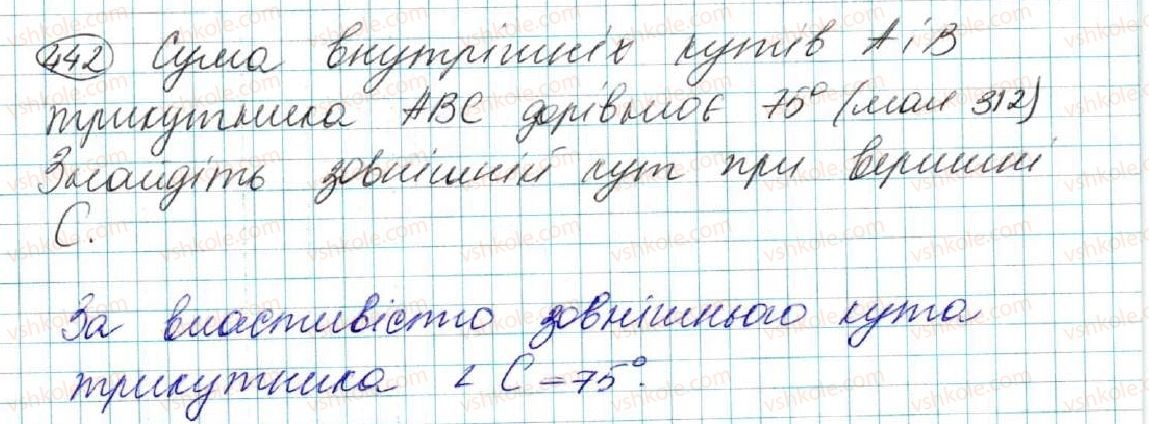 442 Сума внутрішніх кутів A і B
трикутника ABC дорівнює 75° (мал 312)
Знайдіть зовнішній кут при вершині
C.
За властивістю зовнішнього кута
трикутника ∠ C = 75°.